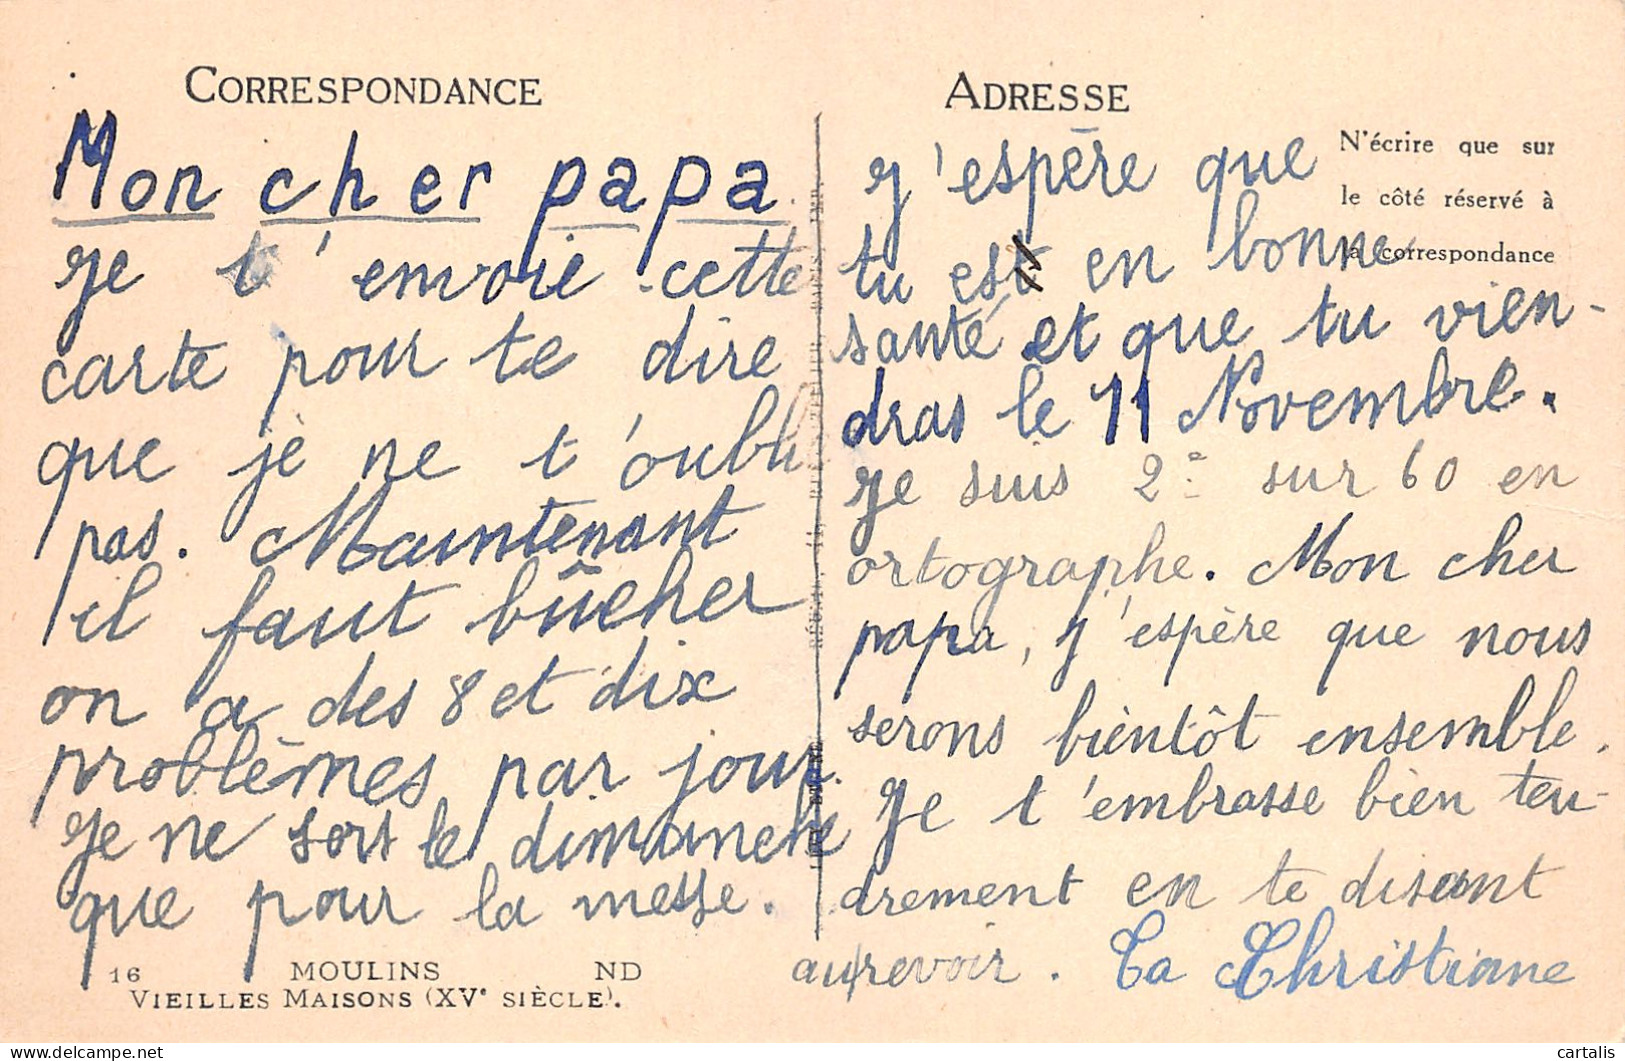 CORRESPONDANCE
Mon cher papa
Je t'envoie cette
carte pour te dire
que je ne t'oubli
pas. Maintenant
il faut bûcher
on a des 8 et dix
problêmes par jour.
Je ne sors le dimanche
que pour la messe.
16 MOULINS ND
VIEILLES MAISONS (XVe SIÈCLE).
ADRESSE
N'écrire que sur
le côté réservé à
la correspondance
J'espère que
tu est en bonne
santé et que tu vien-
dras le 11 Novembre.
Je suis 2e sur 60 en
ortographe. Mon cher
papa, j'espère que nous
serons bientôt ensemble.
Je t'embrasse bien ten-
drement en te disant
au/revoir. Ta Christiane
cartalis